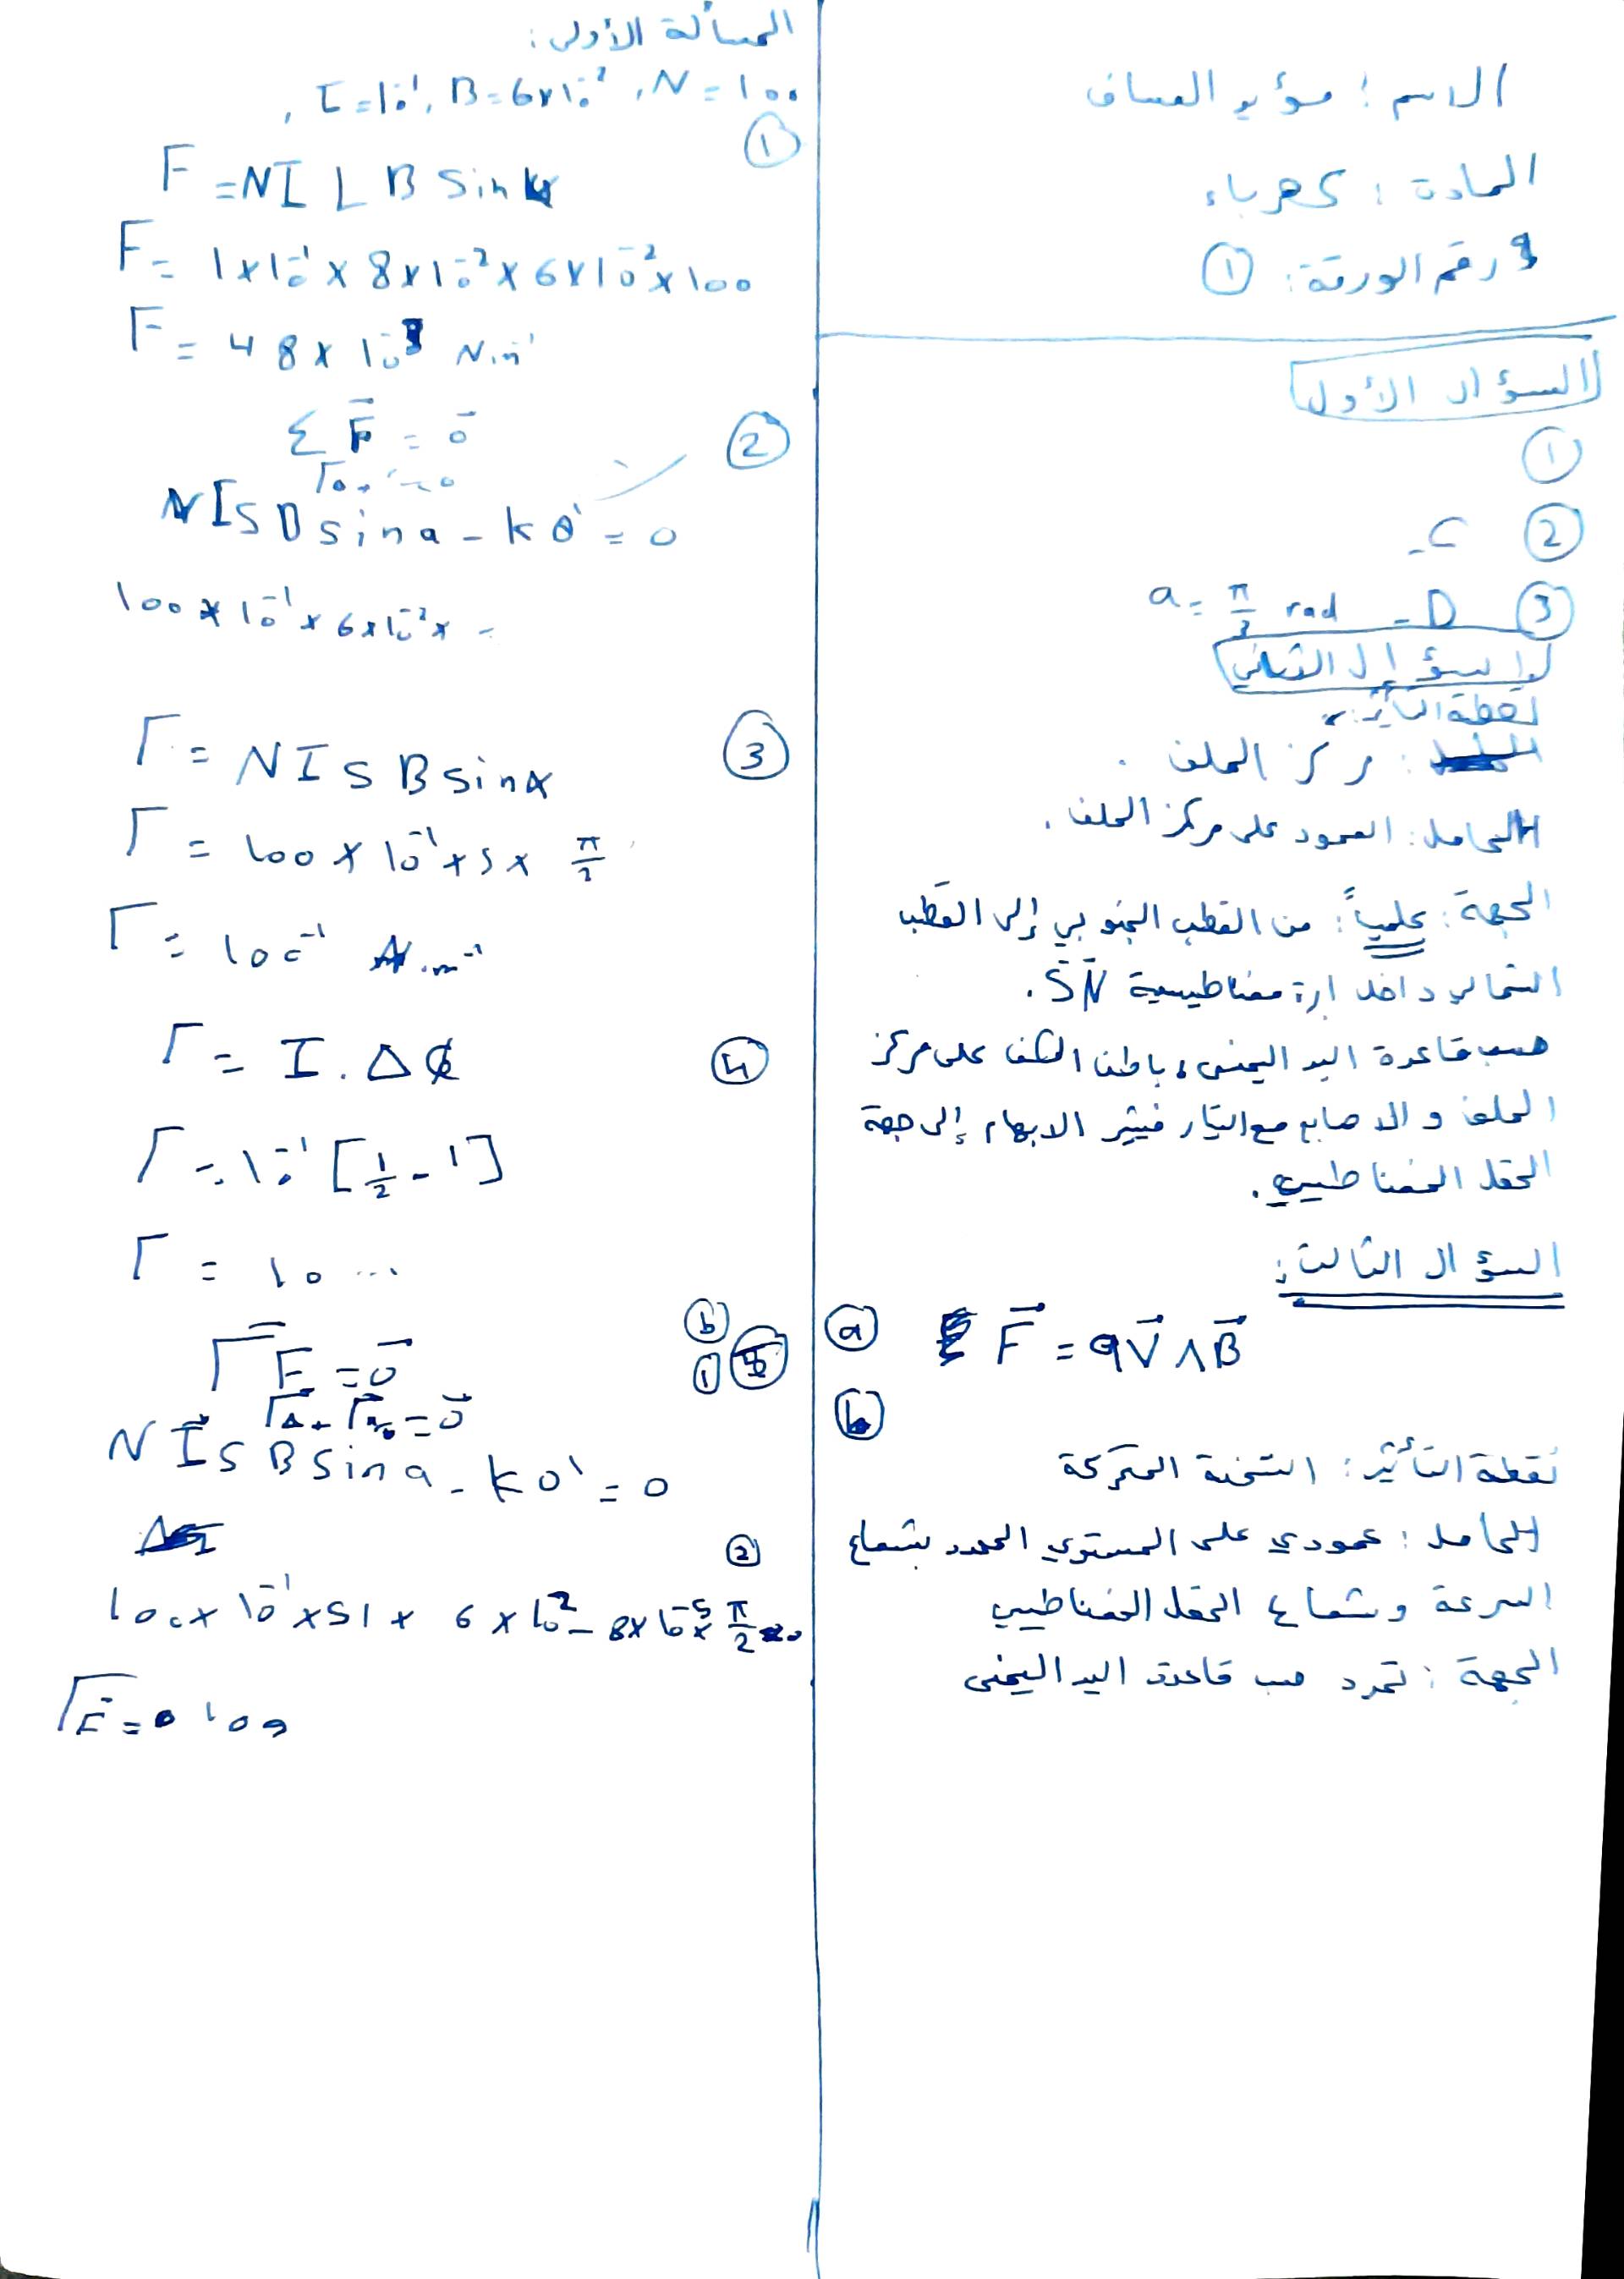 الاسم : مؤيد العساف
المادة : كهرباء
رقم الورقة: ①
السؤال الأول
①
② C-
③ D - a = π/2 rad
السؤال الثاني
نقطة التأثير:
مركز الملف .
الحامل: العمود على مركز الملف .
الجهة: علمياً: من القطب الجنوبي إلى القطب
الشمالي داخل ابرة مغناطيسية SN .
حسب قاعدة اليد اليمنى، باطن الكف على مركز
الملف و الاصابع مع التيار فيشير الابهام إلى جهة
الحقل المغناطيسي .
السؤال الثالث:
ⓐ F⃗ = qV⃗ ∧ B⃗
ⓑ
نقطة التأثير: الشحنة المتحركة
الحامل: عمودي على المستوي المحدد بشعاع
السرعة وشعاع الحقل المغناطيسي
الجهة : تحدد حسب قاعدة اليد اليمنى
المسألة الأولى:
N = 100 , B = 6×10⁻² , I = 10⁻¹ ,
①
F = N I L B sin α
F = 1×10⁻¹ × 8×10⁻² × 6×10⁻² × 100
F = 48×10⁻³ N.m⁻¹
② Σ F⃗ = 0⃗
N I S B sin a - k θ' = 0
100 × 10⁻¹ × 6×10⁻² × =
③ Γ = N I S B sin α
Γ = 100 × 10⁻¹ × s × π/2
Γ = 100⁻¹ N.m⁻¹
④ Γ = I . Δ ϕ
Γ = 10⁻¹ [1/2 - 1]
Γ = 10 ...
ⓑ
① Γ F = 0⃗
N I S B sin a - k θ' = 0
②
100 × 10⁻¹ × S1 × 6×10⁻² - 8×10⁻⁵ × π/2 = 0